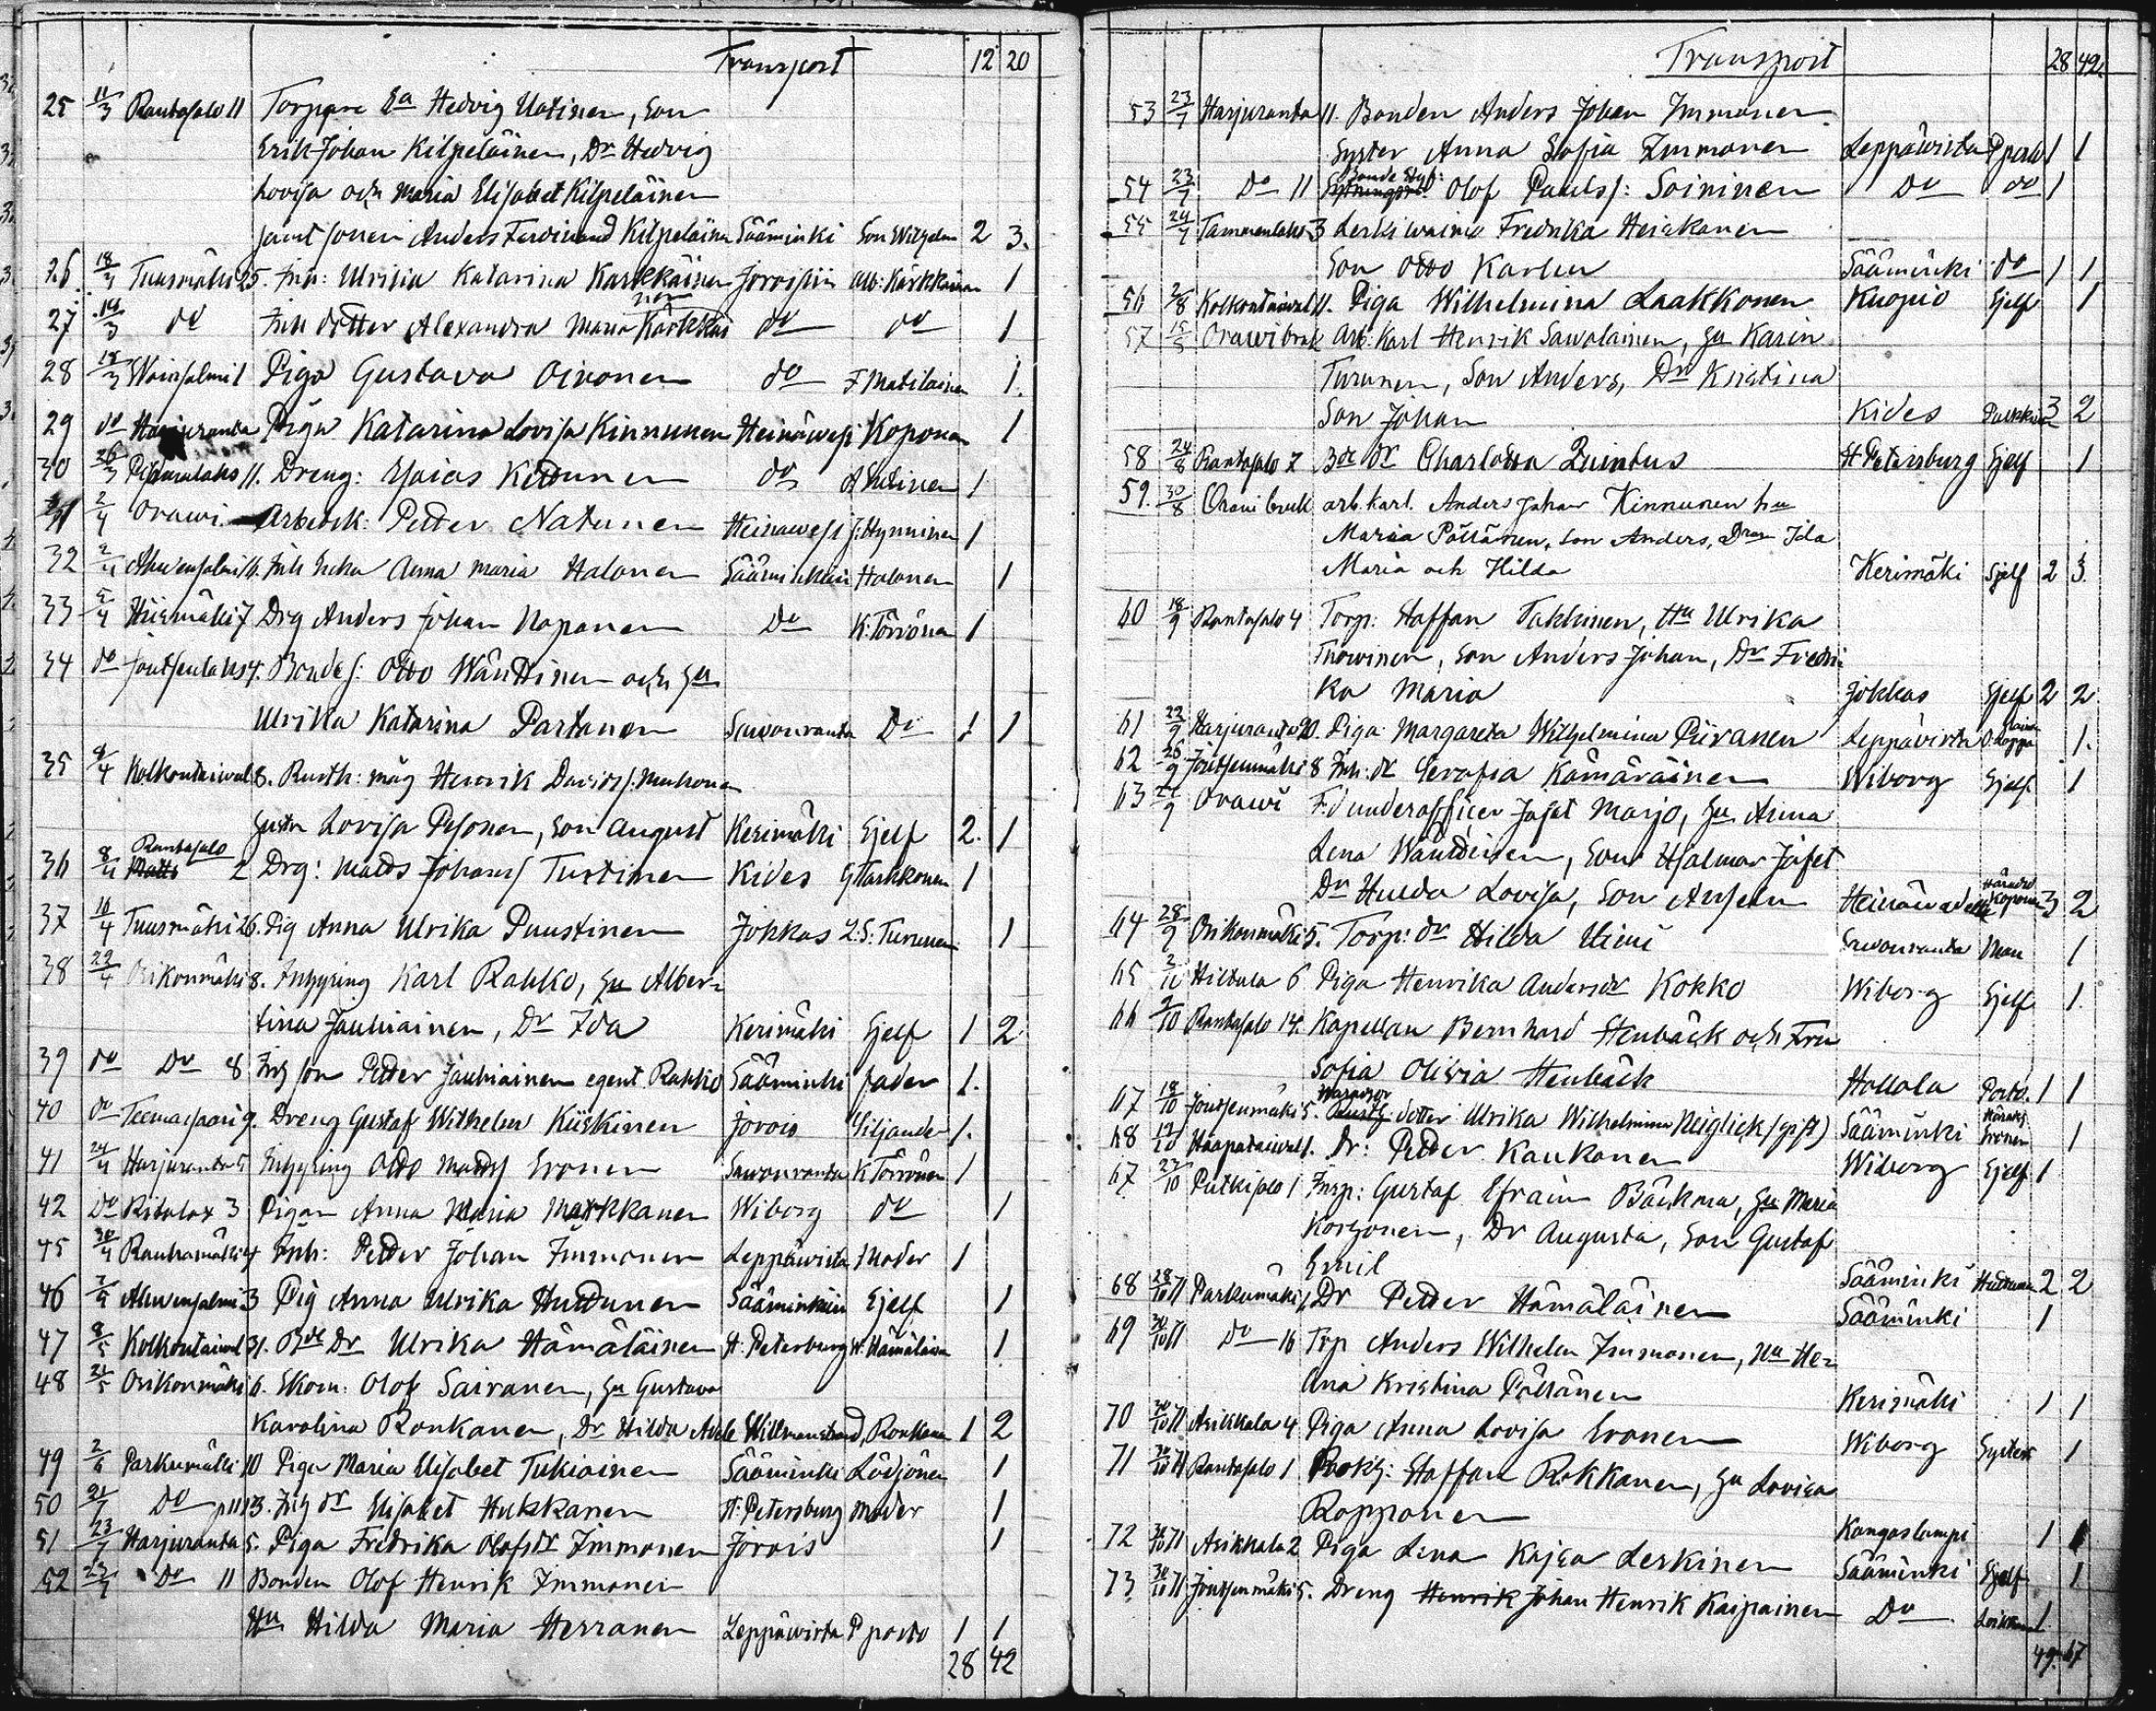 Transport 12 20
25 11/3 Rantasalo 11 Torpare Ea Hedvig Uotinen, Son
Erik Johan Kilpeläinen, Dr Hedvig
Lovisa och Maria Elisabet Kilpeläinen
samt sonen Anders Ferdinand Kilpeläinen Sääminki Son Wilhelm 2 3.
26. 18/3 Tuusmäki 25. Inh: Ulrika Katarina Karkkäinen Jorois Alb: Kärkkäinen 1
27 18/3 do Inh dotter Alexandra Maria Kärkkäinen do do 1
28 18/3 Woinsalmi 1 Piga Gustava Oinonen do F. Matilainen 1.
29 do Harjuranta Piga Katarina Lovisa Kinnunen Heinäwesi Koponen 1
30 26/3 11. Dreng: Esaias Kettunen do 1
31 2/4 Orawi Arbetsk: Petter Natunen Heinawesi J: Hynninen 1
32 2/4 Ahwensalmi Inh Enka Anna Maria Halonen Sääminki Halonen 1
33 5/4 Hiismäki 7 Drg Anders Johan Noponen Do K: Törrönen 1
34 do Joutsenlaks 4. Bondes: Otto Wänttinen och Hu
Ulrika Katarina Partanen Sawonranta Do 1 1
35 8/4 Kolkontaiwal 8. Rusth: måg Henrik Davids: Muhonen
Hustru Lovisa Pesonen, Son August Kerimäki Sjelf 2. 1
36 8/4 Rantasalo 2 Drg: Matts Johans Turtinen Kides G Taskkonen 1
37 16/4 Tuusmäki 26. Pig Anna Ulrika Puustinen Jokkas L: S: Turunen 1
38 22/4 Osikonmäki 8. Inhysing Karl Rahko, Hu Alber-
tina Jauhiainen, Dr Ida Kerimäki Sjelf 1 2
39 do Do 8 Inh son Petter Jauhiainen Rahko Sääminki fader 1.
40 do Teemassaari 9. Dreng Gustaf Wilhelm Kiiskinen Jorois Siljander 1.
41 24/4 Harjuranta 5 Inhysing Otto Matts Eronen Sawonranta K Törrönen 1
42 Do Ritolax 3 Pigan Anna Maria Markkanen Wiborg do 1
45 30/4 Rauhamäki 4 Inh: Petter Johan Immonen Leppäwirta Moder 1
46 7/5 Ahwensalmi 3 Pig Anna Ulrika Huttunen Sääminki Sjelf 1
47 8/5 Kolkontaiwal 31. Bde Dr Ulrika Hämäläinen St. Peterburg W. Hämäläinen 1
48 21/5 Osikonmäki 6. Skom: Olof Sairanen, Hu Gustava
Karolina Ronkanen, Dr Hilda Adele Willmanstrand, Ronkanen 1 2
49 2/6 Parkumäki 10 Piga Maria Elisabet Tukiainen Sääminki Lödjönen 1
50 21/7 Do 13. Inh dr Elisabet Hukkanen St: Petersburg moder 1
51 23/7 Harjuranta 5. Piga Fredrika Olofsdr Immonen Jorois 1
52 23/7 Do 11 Bonden Olof Henrik Immonen
Hu Hilda Maria Herranen Leppäwirta P porto 1 1
28 42
Transport 28 42.
53 23/7 Harjuranta 11. Bonden Anders Johan Immonen
Syster Anna Sofia Immonen Leppäwirta P porto 1 1
54 23/7 Do 11 Bonde Olof Pauls: Soininen Do do 1
55 24/7 Tammenlaks 3 Leski waimo Fredrika Heiskanen
Son Otto Karlen Sääminki do 1 1
56 2/8 Kolkontaiwal 11. Piga Wilhelmina Laakkonen Kuopio Sjelf 1
57 15/5 Orawi bruk Arb: Karl Henrik Sawolainen, Hu Karin
Turunen, Son Anders, Dr Kristina
Son Johan Kides 3 2
58 24/8 Rantasalo 7 Bde dr Charlotta Quintus St Petersburg Sjelf 1
59. 30/8 Orawi bruk arb. karl. Anders Johan Kinnunen hu
Maria Pöllänen, Son Anders, Drar Ida
Maria och Hilda Kerimäki Sjelf 2 3.
60 18/9 Rantasalo 4 Torp: Staffan Takkinen, Hu Ulrika
Thowinen, Son Anders Johan, Dr Fredri-
ka Maria Jokkas Sjelf 2 2
61 22/9 Harjuranta 20. Piga Margareta Wilhelmina Piiranen Leppävirta 1.
62 26/9 Joutsenmäki 8 Inh: dr Serafia Kämäräinen Wiborg Sjelf 1
63 27/9 Orawi F.d underofficer Jafet Marjo, Hu Anna
Lena Wänttinen, Son Hjalmar Jafet
Dr Hulda Lovisa, Son Anselm Heinäwesi Koponen 3 2
64 28/9 Osikonmäki 5. Torp: dr Hilda Himi Sawonranta Man 1
65 2/10 Hiltula 6 Piga Henrika Andersdr Kokko Wiborg Sjelf 1.
66 9/10 Rantasalo 14. Kapellan Bernhard Stenbäck och Fru
Sofia Oliwia Stenbäck Hollola Porto. 1 1
67 18/10 Joutsenmäki 5. dotter Ulrika Wilhelmina Neiglick (gift) Sääminki Eronen 1
68 19/10 Haapataiwal 1. Dr: Petter Kaukonen Wiborg Sjelf 1
67 27/10 Putkisalo 1 Insp: Gustaf Efraim Bäckman, Hu Maria
Korhonen, Dr Augusta, Son Gustaf
Emil Sääminki 2 2
68 28/10 71 Parkumäki 1 Dr Petter Hämäläinen Sääminki 1
69 30/10 71 Do 16 Trp Anders Wilhelm Immonen, Hu He-
lena Kristina Pöllänen Kerimäki 1 1
70 30/10 71 Asikkala 4 Piga Anna Lovisa Eronen Wiborg Syster 1
71 30/10 71 Rantasalo 1 Bokh: Staffan Rokkanen, Hu Lovisa
Ropponen Kangaslampi 1 1
72 30/10 71 Asikkala 2 Piga Lena Kajsa Leskinen Sääminki Sjelf 1
73. 30/10 71 Joutsenmäki 5. Dreng Henrik Johan Henrik Kaipainen Do 1.
49. 67